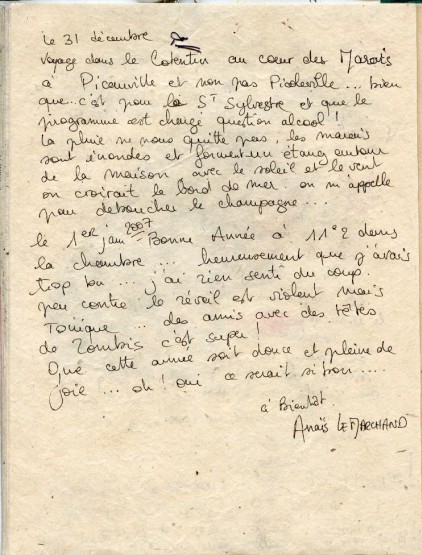 Le 31 décembre
voyage dans le Cotentin au cœur des Marais
à Picauville et non pas Picoleville... bien
que... c'est pour la St Sylvestre et que le
programme est chargé question alcool !
la pluie ne nous quitte pas, les marais
sont inondés et forment un étang autour
de la maison, avec le soleil et le vent
on croirait le bord de mer. on m'appelle
pour déboucher le champagne...
le 1er janv 2007 - Bonne Année à 11°2 dans
la chambre ... heureusement que j'avais
trop bu ... j'ai rien senti du coup.
par contre le réveil est violent mais
Tonique ... des amis avec des têtes
de Zombis c'est super !
Que cette année soit douce et pleine de
joie ... oh ! oui ce serait si bon ....
à Bientôt
Anaïs LEMARCHAND